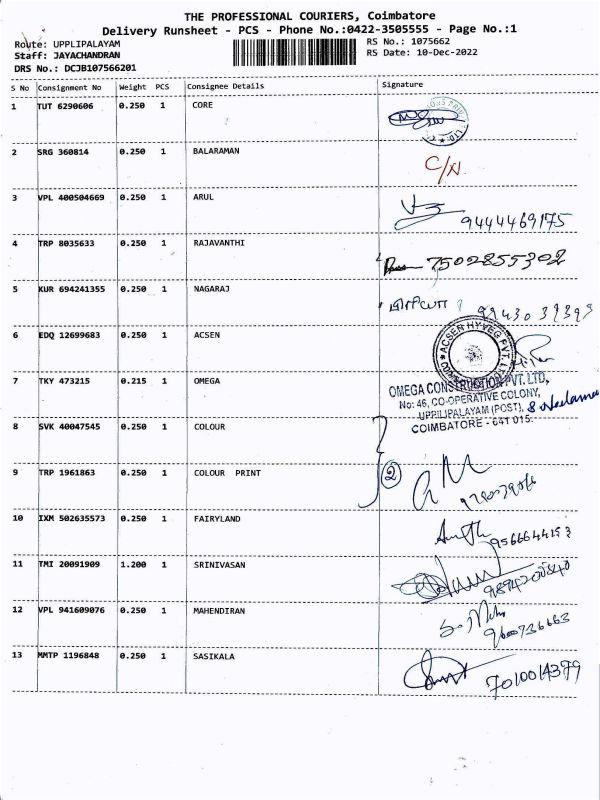 THE PROFESSIONAL COURIERS, Coimbatore
Delivery Runsheet - PCS - Phone No.:0422-3505555 - Page No.:1
Route: UPPLIPALAYAM
RS No.: 1075662
Staff: JAYACHANDRAN
RS Date: 10-Dec-2022
DRS No.: DCJB107566201
S No Consignment No Weight PCS Consignee Details Signature
1 TUT 6290606 0.250 1 CORE
2 SRG 360814 0.250 1 BALARAMAN C/N
3 VPL 400504669 0.250 1 ARUL 9444469175
4 TRP 8035633 0.250 1 RAJAVANTHI 7502855302
5 KUR 694241355 0.250 1 NAGARAJ
6 EDQ 12699683 0.250 1 ACSEN ACSEN HYVEG PVT. LTD
7 TKY 473215 0.215 1 OMEGA
OMEGA CONSTRUCTION PVT. LTD,
No: 46, CO-OPERATIVE COLONY,
UPPILIPALAYAM (POST),
COIMBATORE - 641 015.
8 SVK 40047545 0.250 1 COLOUR
9 TRP 1961863 0.250 1 COLOUR PRINT 2
10 IXM 502635573 0.250 1 FAIRYLAND 9566644153
11 TMI 20091909 1.200 1 SRINIVASAN
12 VPL 941609076 0.250 1 MAHENDIRAN
13 MMTP 1196848 0.250 1 SASIKALA 7010014379